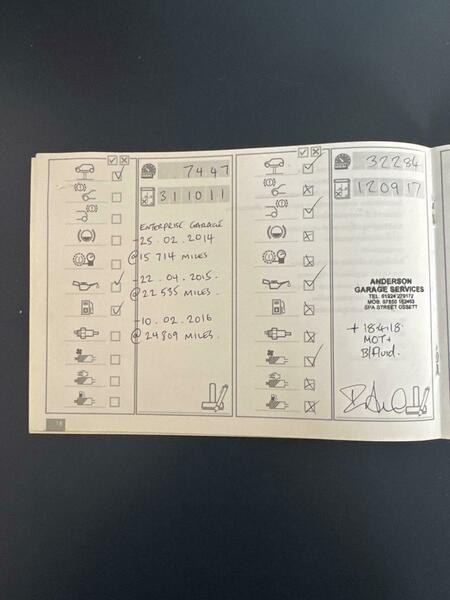 7447
311011
ENTERPRISE GARAGE
- 25.02.2014
@ 15 714 MILES
- 22.04.2015.
@ 22 535 MILES.
- 10.02.2016
@ 24809 MILES.
32284
120917
ANDERSON
GARAGE SERVICES
TEL: 01924 279172
SPA STREET OSSETT
+ 18-4-18
MOT +
B/fluid.